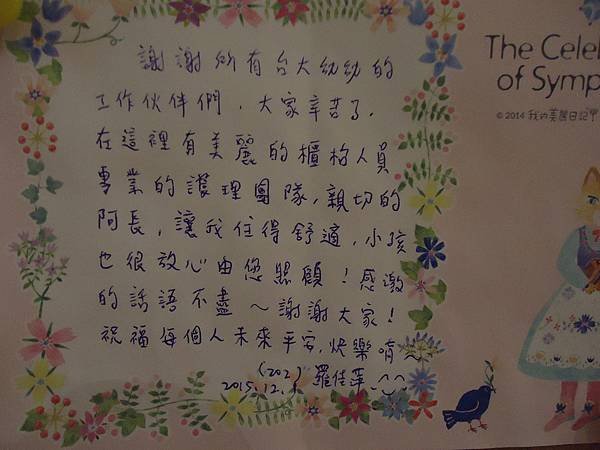 謝謝所有台大幼幼的
工作伙伴們，大家辛苦了，
在這裡有美麗的櫃枱人員
專業的護理團隊，親切的
阿長，讓我住得舒適，小孩
也很放心由您照顧！感激
的話語不盡～謝謝大家！
祝福每個人未來平安，快樂唷～
(202)
2015.12. 羅佳萍
The Cele
of Symp
© 2014 我的美麗日記